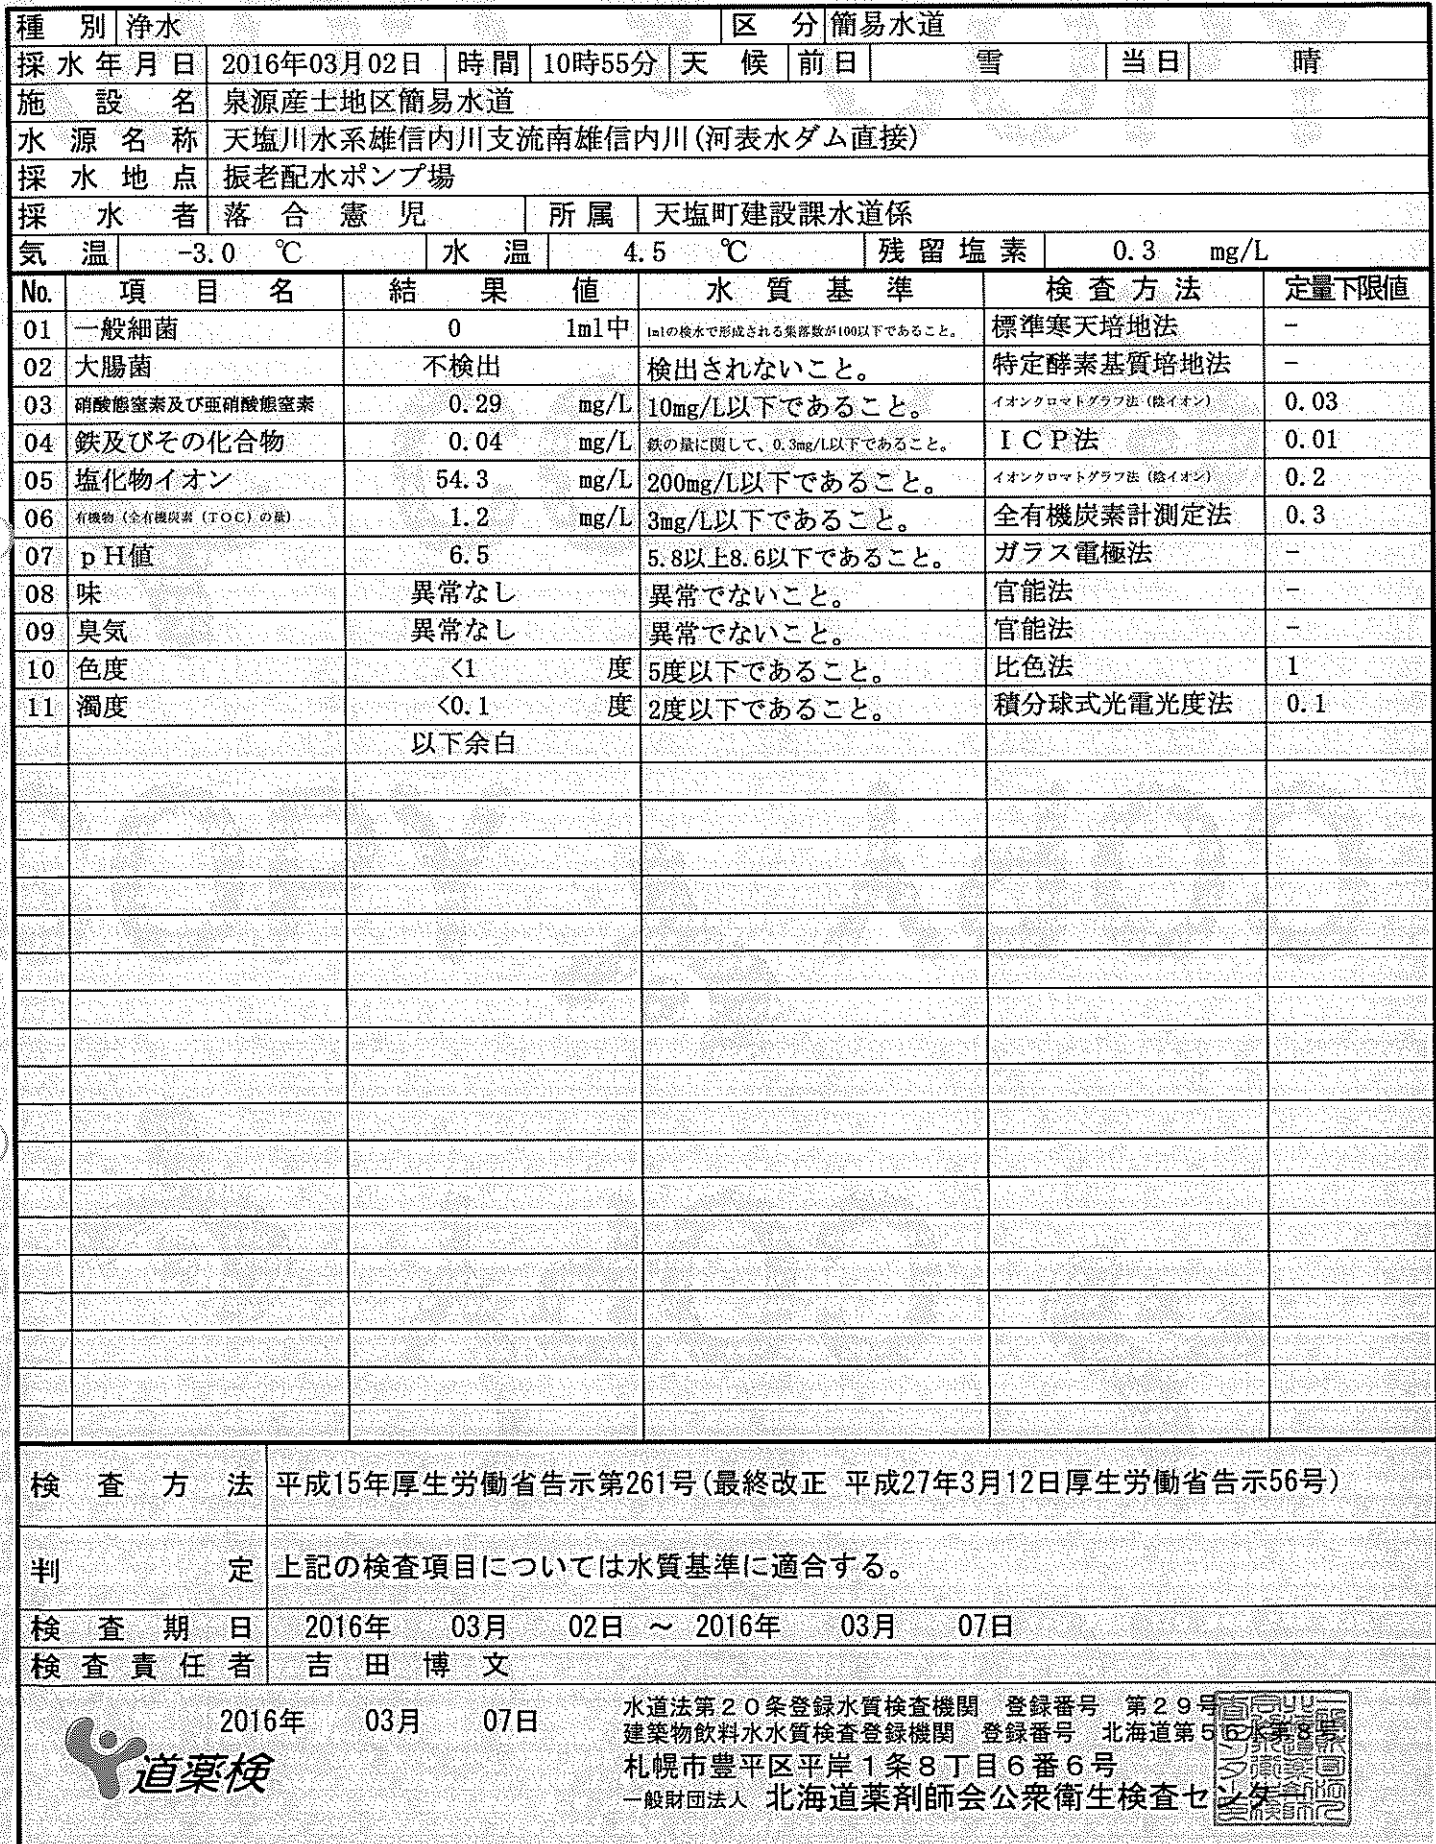 種別 浄水 区分 簡易水道
採水年月日 2016年03月02日 時間 10時55分 天候 前日 雪 当日 晴
施設名 泉源産士地区簡易水道
水源名称 天塩川水系雄信内川支流南雄信内川(河表水ダム直接)
採水地点 振老配水ポンプ場
採水者 落合憲児 所属 天塩町建設課水道係
気温 -3.0 ℃ 水温 4.5 ℃ 残留塩素 0.3 mg/L
No. 項目名 結果値 水質基準 検査方法 定量下限値
01 一般細菌 0 1ml中 1mlの検水で形成される集落数が100以下であること。 標準寒天培地法 −
02 大腸菌 不検出 検出されないこと。 特定酵素基質培地法 −
03 硝酸態窒素及び亜硝酸態窒素 0.29 mg/L 10mg/L以下であること。 イオンクロマトグラフ法(陰イオン) 0.03
04 鉄及びその化合物 0.04 mg/L 鉄の量に関して、0.3mg/L以下であること。 ICP法 0.01
05 塩化物イオン 54.3 mg/L 200mg/L以下であること。 イオンクロマトグラフ法(陰イオン) 0.2
06 有機物(全有機炭素(TOC)の量) 1.2 mg/L 3mg/L以下であること。 全有機炭素計測定法 0.3
07 pH値 6.5 5.8以上8.6以下であること。 ガラス電極法 −
08 味 異常なし 異常でないこと。 官能法 −
09 臭気 異常なし 異常でないこと。 官能法 −
10 色度 <1 度 5度以下であること。 比色法 1
11 濁度 <0.1 度 2度以下であること。 積分球式光電光度法 0.1
以下余白
検査方法 平成15年厚生労働省告示第261号(最終改正 平成27年3月12日厚生労働省告示56号)
判定 上記の検査項目については水質基準に適合する。
検査期日 2016年 03月 02日 ～ 2016年 03月 07日
検査責任者 吉田博文
2016年 03月 07日
道薬検
水道法第20条登録水質検査機関 登録番号 第29号
建築物飲料水水質検査登録機関 登録番号 北海道第56水第8号
札幌市豊平区平岸1条8丁目6番6号
一般財団法人 北海道薬剤師会公衆衛生検査センター